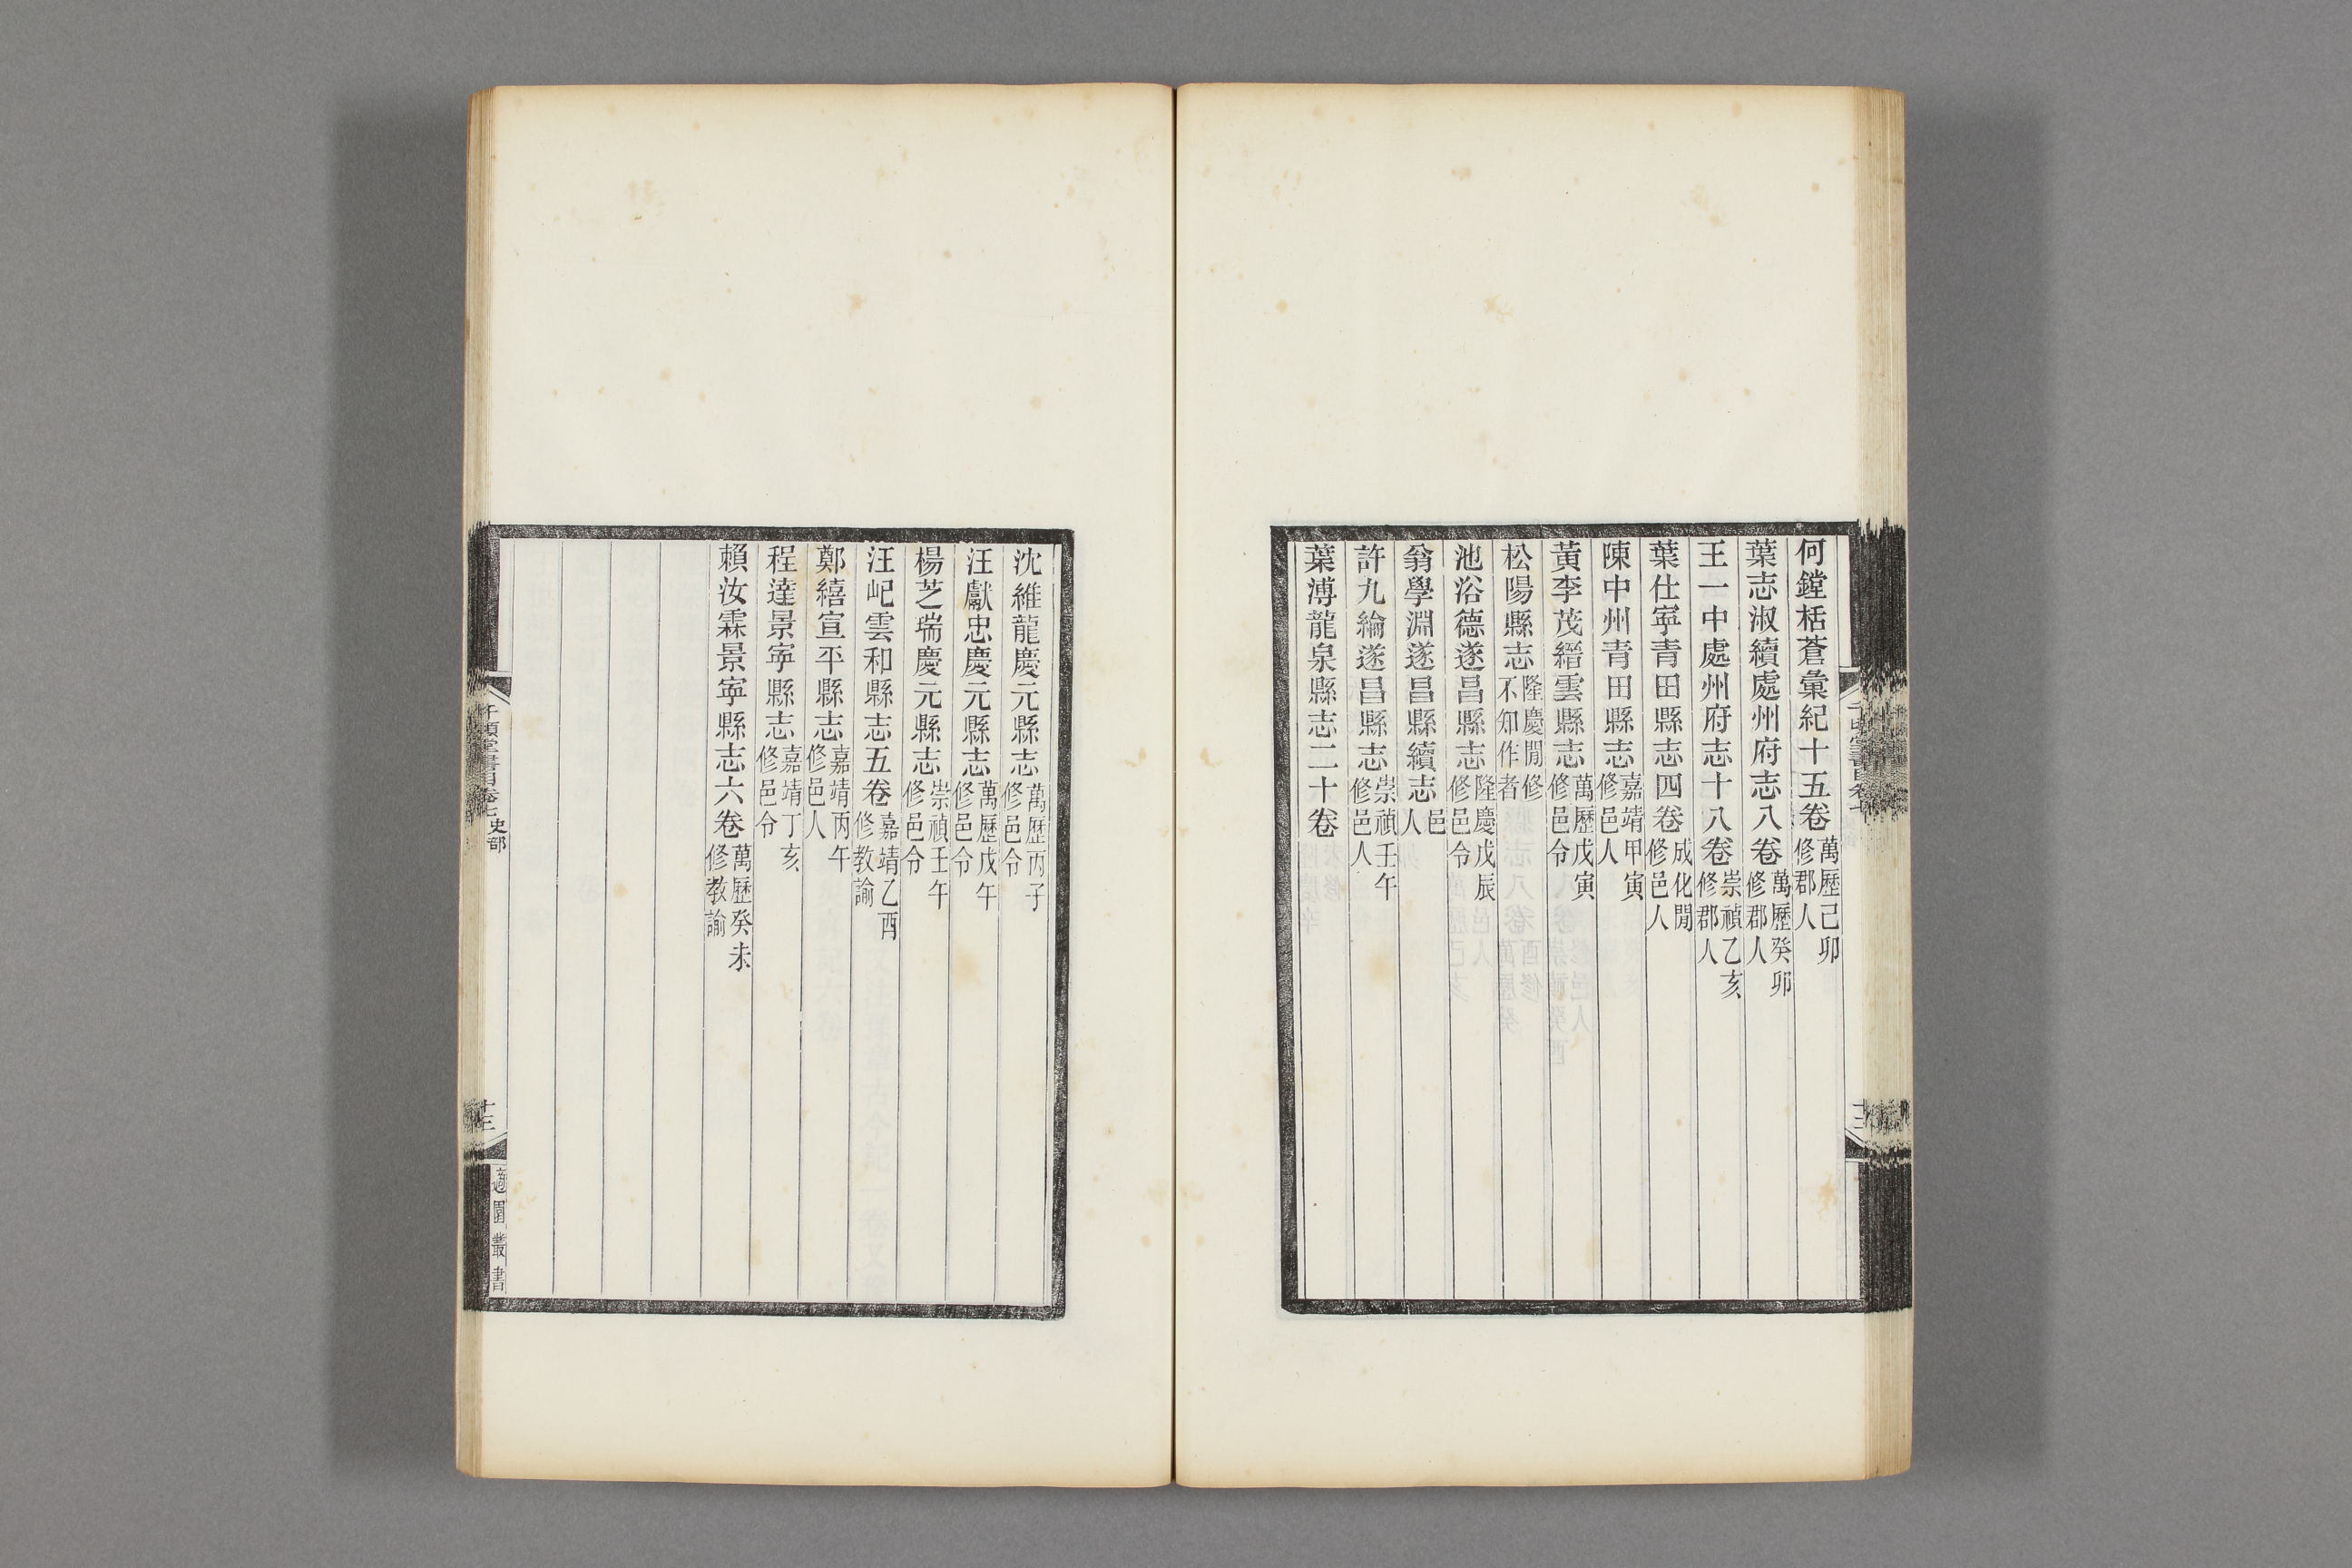 何鏜栝蒼彙紀十五卷萬歷己卯修郡人
葉志淑續處州府志八卷萬歷癸卯修郡人
王一中處州府志十八卷崇禎乙亥修郡人
葉仕寧青田縣志四卷成化閒修邑人
陳中州青田縣志嘉靖甲寅修邑人
黃李茂縉雲縣志萬歷戊寅修邑令
松陽縣志隆慶閒修不知作者
池浴德遂昌縣志隆慶戊辰修邑令
翁學淵遂昌縣續志邑人
許九綸遂昌縣志崇禎壬午修邑人
葉溥龍泉縣志二十卷
沈維龍慶元縣志萬歷丙子修邑令
汪獻忠慶元縣志萬歷戊午修邑令
楊芝瑞慶元縣志崇禎壬午修邑令
汪屺雲和縣志五卷嘉靖乙酉修教諭
鄭禧宣平縣志嘉靖丙午修邑人
程達景寧縣志嘉靖丁亥修邑令
賴汝霖景寧縣志六卷萬歷癸未修教諭
千頃堂書目卷七史部
十三
適園叢書